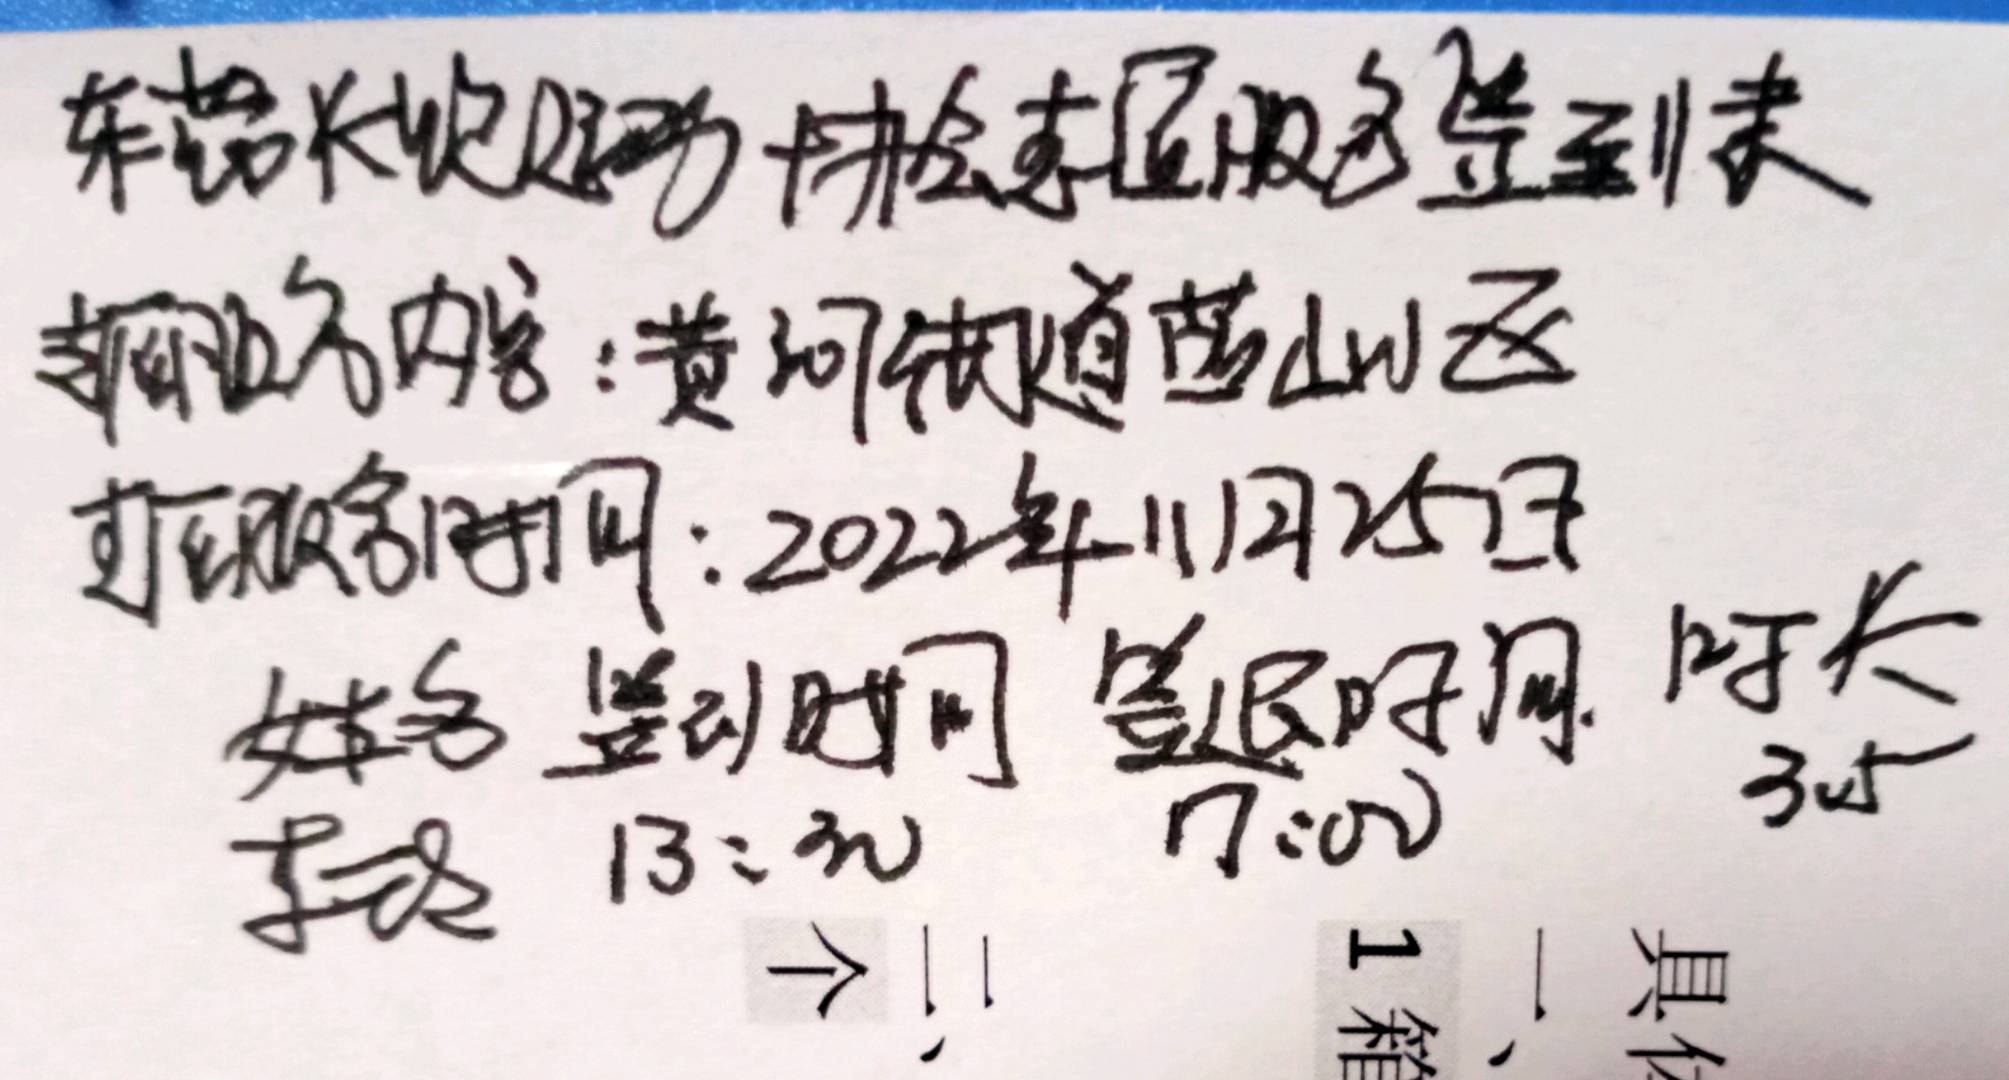 东营长跑运动协会志愿服务签到表
志愿服务内容：黄河街道营山社区
志愿服务时间：2022年11月25日
姓名 签到时间 签退时间 时长
13:30 17:00 3.5
具体
一、
1箱
二、
个